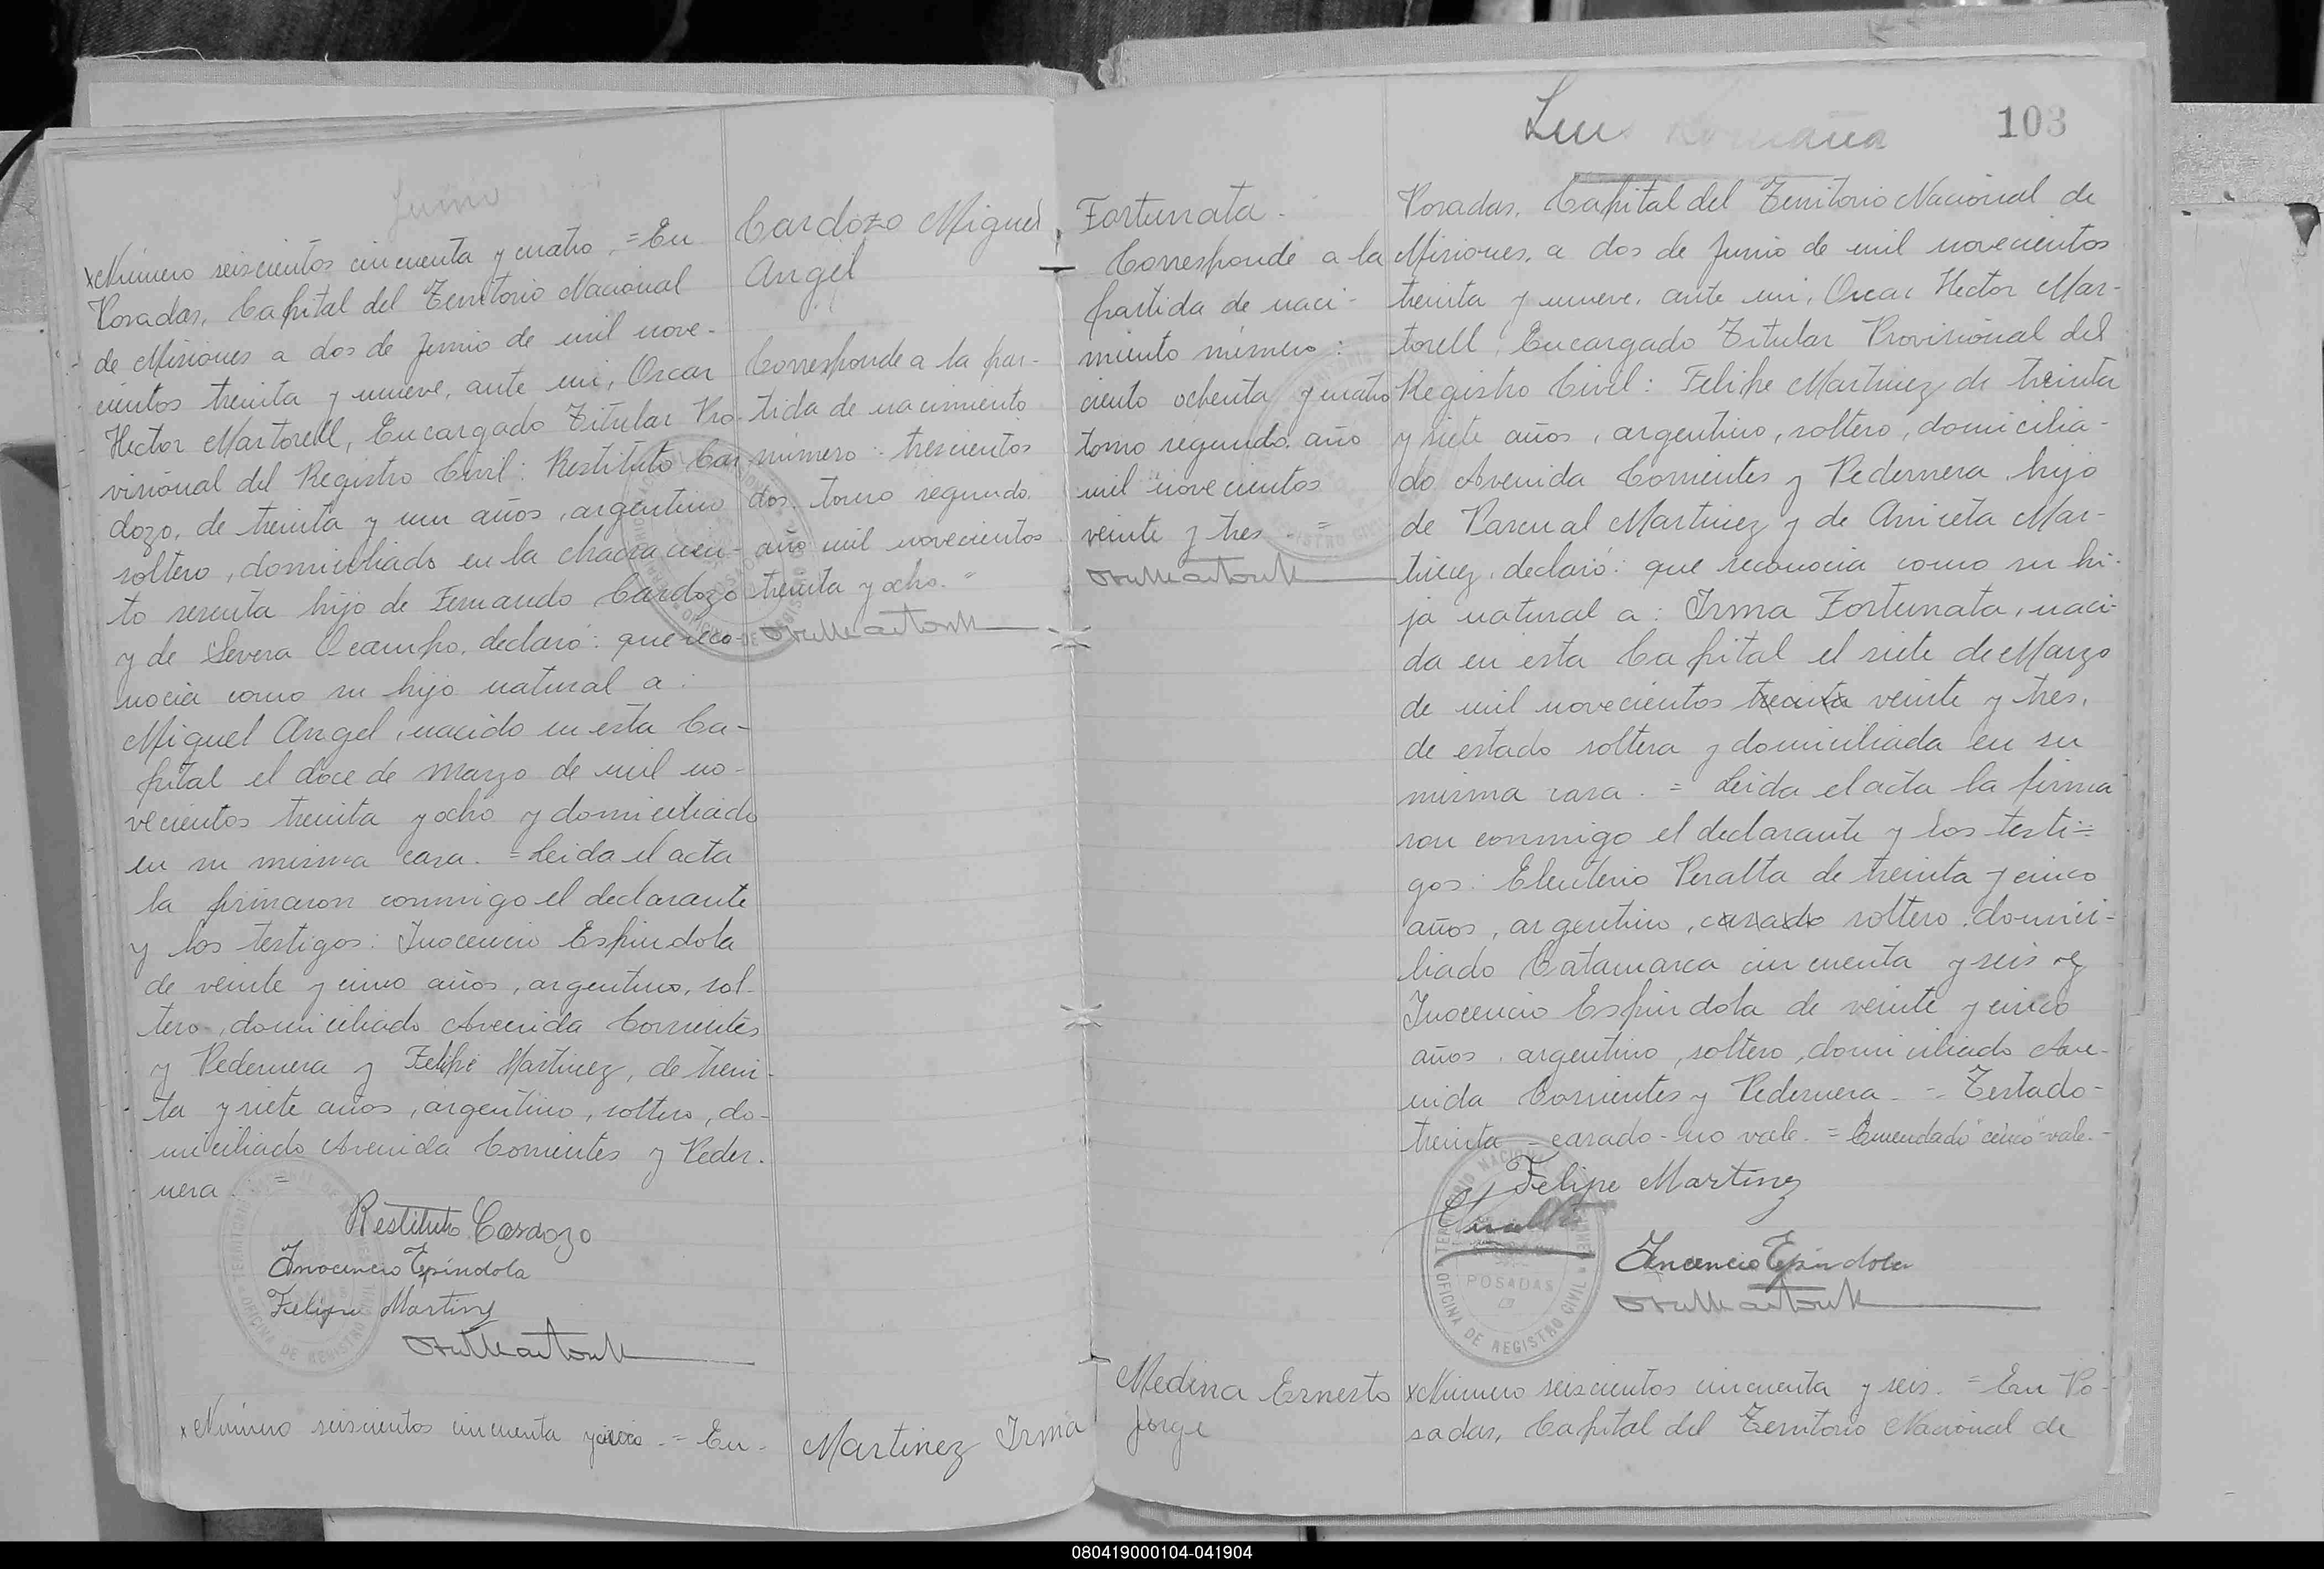 Junio
xNúmero seiscientos cincuenta y cuatro. = En
Posadas, Capital del Territorio Nacional
de Misiones a dos de Junio de mil nove-
cientos treinta y nueve, ante mi, Oscar
Hector Martorell, Encargado Titular Pro-
visional del Registro Civil: Restituto Car
dozo, de treinta y un años, argentino
soltero, domiciliado en la chacra cien-
to sesenta hijo de Fernando Cardozo
y de Severa Ocampo, declaró: que reco-
nocia como su hijo natural a:
Miguel Angel, nacido en esta Ca-
pital el doce de Marzo de mil no-
vecientos treinta y ocho y domiciliado
en su misma casa. = Leida el acta
la firmaron conmigo el declarante
y los testigos: Inocencio Espindola
de veinte y cinco años, argentino, sol-
tero, domiciliado Avenida Corrientes
y Pedernera y Felipe Martinez, de trein-
ta y siete años, argentino, soltero, do-
miciliado Avenida Corrientes y Peder-
nera. =
Restituto Cardozo
Inocencio Espindola
Felipe Martinez
xNúmero seiscientos cincuenta y cinco. = En
Cardozo Miguel
Angel
Corresponde a la par-
tida de nacimiento
número: trescientos
dos. tomo segundo.
año mil novecientos
treinta y ocho. =
Martinez Irma
103
Fortunata.
Corresponde a la
partida de naci-
miento número:
ciento ochenta y cuatro
tomo segundo. año
mil novecientos
veinte y tres. =
Posadas, Capital del Territorio Nacional de
Misiones, a dos de Junio de mil novecientos
treinta y nueve, ante mi, Oscar Hector Mar-
torell, Encargado Titular Provisional del
Registro Civil: Felipe Martinez de treinta
y siete años, argentino, soltero, domicilia-
do Avenida Corrientes y Pedernera, hijo
de Pascual Martinez y de Aniceta Mar-
tinez, declaró: que reconocia como su hi-
ja natural a: Irma Fortunata, naci-
da en esta Capital el siete de Marzo
de mil novecientos treinta veinte y tres,
de estado soltera y domiciliada en su
misma casa. = Leida el acta la firma
ron conmigo el declarante y los testi=
gos: Eleuterio Peralta de treinta y cinco
años, argentino, casado soltero domici-
liado Catamarca cincuenta y seis y
Inocencio Espindola de veinte y cinco
años, argentino, soltero, domiciliado Ave-
nida Corrientes y Pedernera. = Testado-
treinta - casado - no vale. = Enmendado "cinco" vale. -
Felipe Martinez
Inocencio Espindola
TERRITORIO NACIONAL DE MISIONES
POSADAS
OFICINA DE REGISTRO CIVIL
Medina Ernesto
Jorge
xNúmero seiscientos cincuenta y seis. = En Po-
sadas, Capital del Territorio Nacional de
080419000104-041904